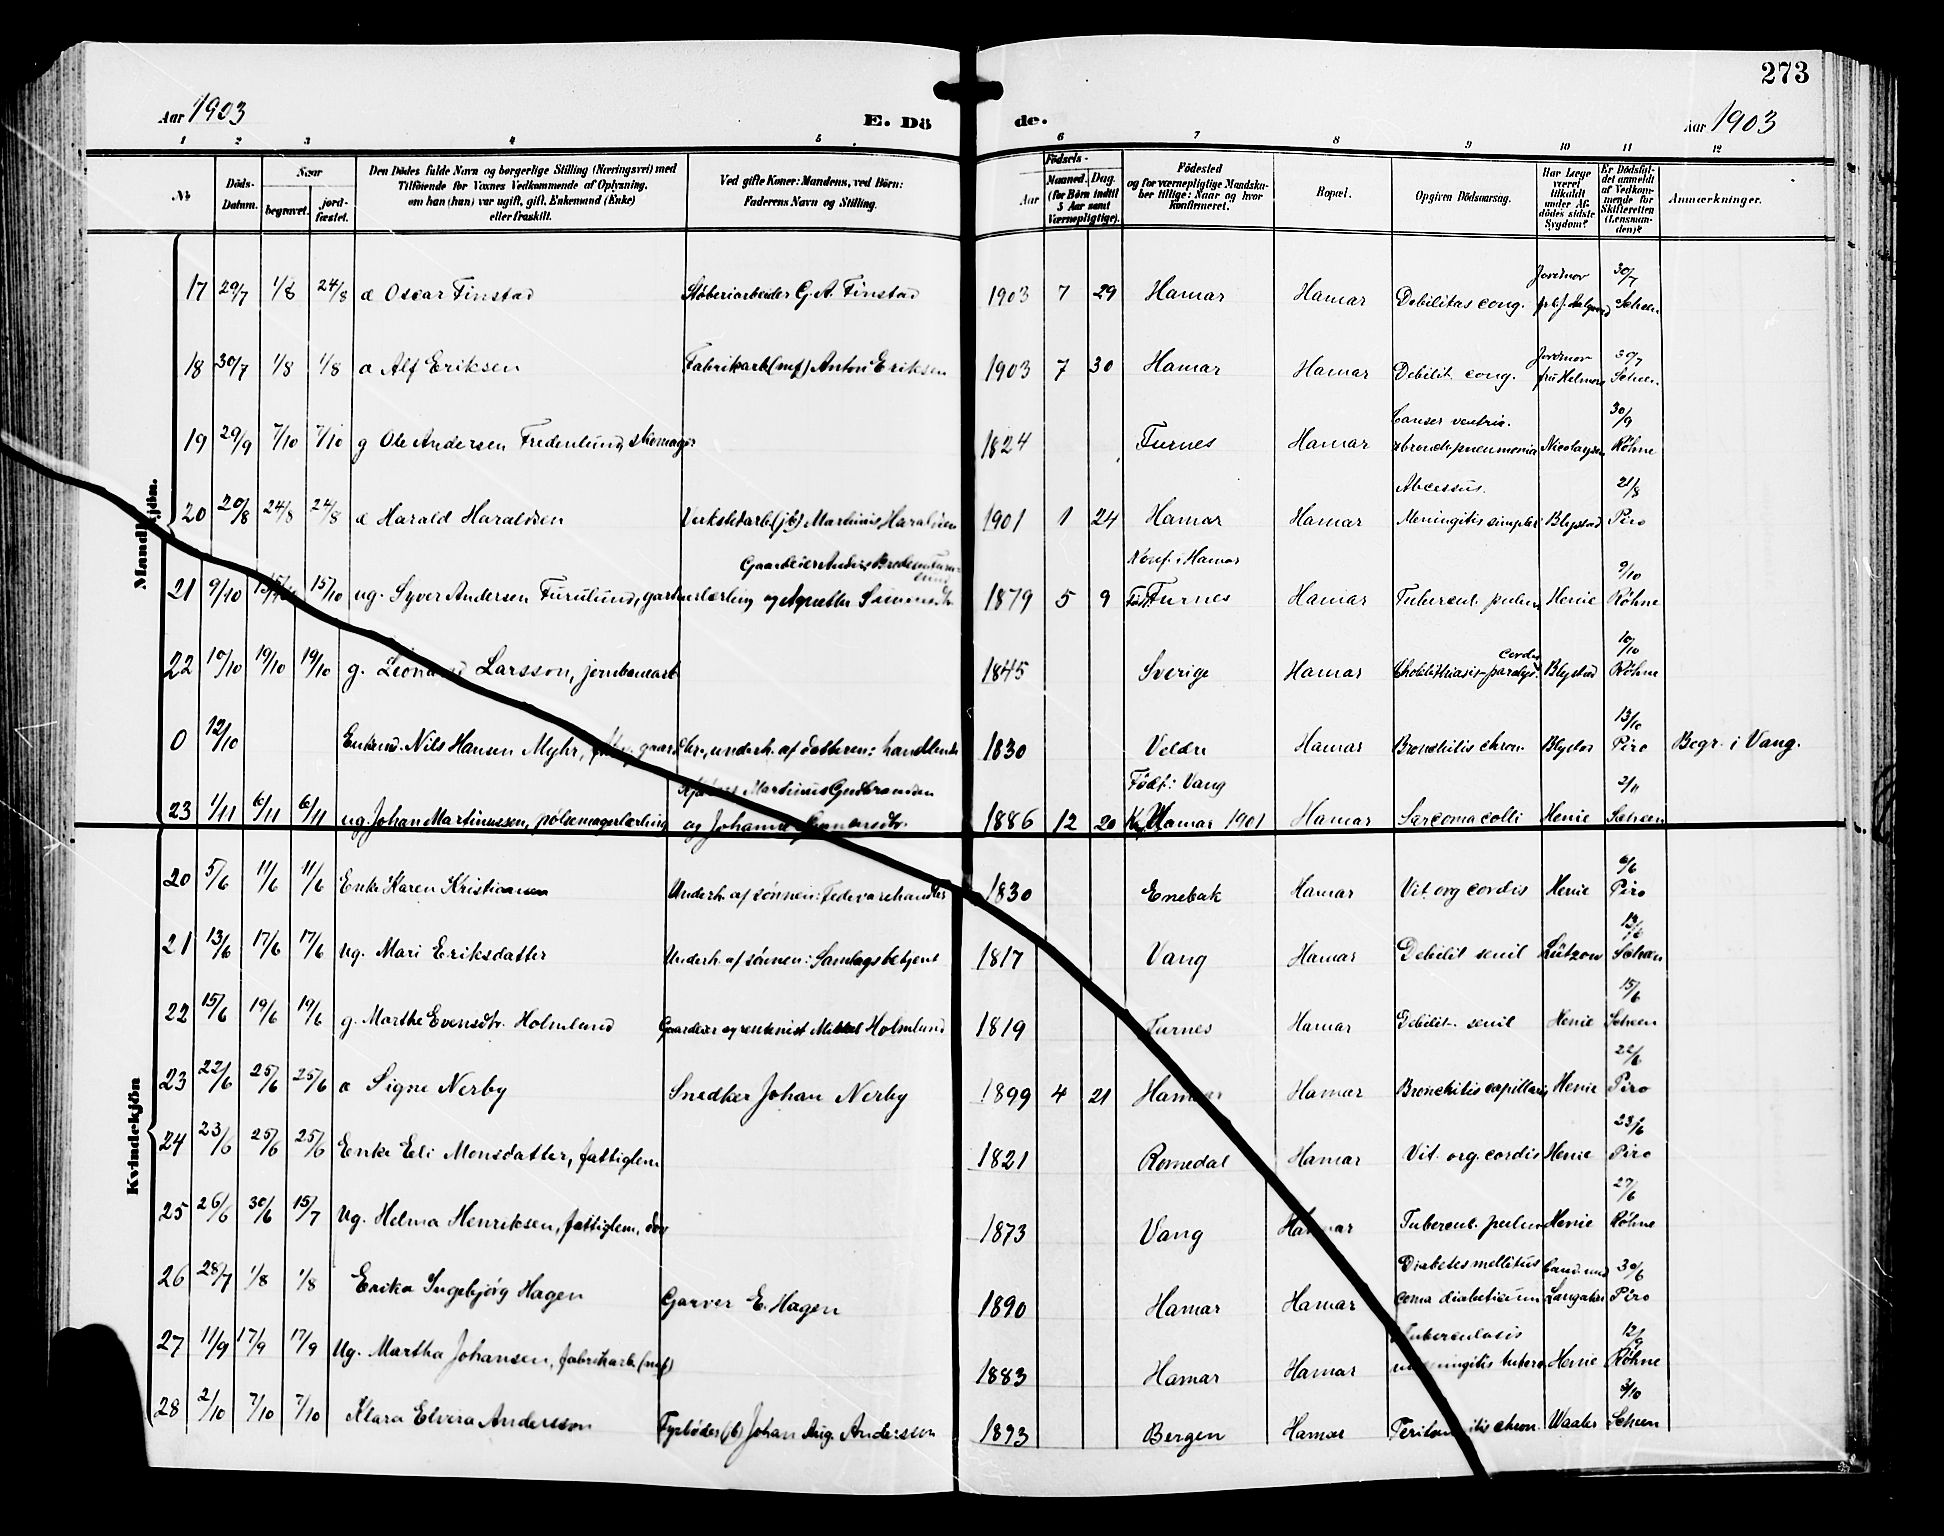 273
Aar 1903
E. Dö de.
Aar 1903
1 2 3 4 5 6 7 8 9 10 11 12
№
Döds-Datum.
Naar
begravet.
jord-fæstet.
Den Dödes fulde Navn og borgerlige Stilling (Næringsvei) med
Tilföiende for Voxnes Vedkommende af Oplysning,
om han (hun) var ugift, gift, Enkemand (Enke)
eller fraskilt.
Ved gifte Koner: Mandens, ved Börn:
Faderens Navn og Stilling.
Födsels-
Aar
Maaned. Dag.
(for Börn indtil
5 Aar samt
Værnepligtige).
Födested
og for værnepligtige Mandska-
ber tillige: Naar og hvor
konfirmeret.
Bopæl.
Opgiven Dödsaarsag.
Har Læge
været
tilkaldt
under Af-
dödes sidste
Sygdom?
Er Dödsfal-
det anmeldt
af Vedkom-
mende for
Skifteretten
(Lensman-
den)?
Anmærkninger.
Mandkjön.
17 29/7 1/8 24/8 a Oscar Finstad Støberiarbeider G. A. Finstad 1903 7 29 Hamar Hamar Debilitas cong. Jordmor 30/7 Scheen
18 30/7 1/8 1/8 a Alf Eriksen Fabrikarb (mf) Anton Eriksen 1903 7 30 Hamar Hamar Debilit. cong. Jordmor fru Helmers 30/7 Scheen
19 29/9 7/10 7/10 g Ole Andersen Fredenlund, skomager 1824 Furnes Hamar Canser ventric. bronchopneumonia Nicolaysen 30/9 Röhne
20 20/8 24/8 24/8 a Harald Haraldsen Verkstedarb (jb) Martinius Haraldsen 1901 1 24 Hamar Hamar Abcessus. Meningitis simplex Blystad 21/8 Piro
21 9/10 15/10 15/10 ug. Syver Andersen Furulund, gartnerlærling og Agnethe Simensdtr. 1879 5 9 Konf. i Hamar Født: Furnes Hamar Tubercul. pulm. Henie 9/10 Röhne
22 10/10 19/10 19/10 g. Leonard Larsson, jernbanearb 1845 Sverige Hamar Cholelithiasis - paralys. cordis Blystad 10/10 Röhne
0 12/10 Enkmd. Nils Hansen Myhr, underh. af datteren: handlende 1830 Veldre Hamar Bronchitis chron. Blystad 13/10 Piro Begr. i Vang.
23 1/11 6/11 6/11 ug. Johan Martinussen, pølsemagerlærling Martinus Gudbrandsen og Johanne 1886 12 20 Født: Vang Kf. Hamar 1901 Hamar Sarcoma colli Henie 2/11 Scheen
Kvindekjön
20 5/6 11/6 11/6 Enke Karen Kristiansen Underh. af sønnen: Fedevarehandler 1830 Enebak Hamar Vit. org cordis Henie 6/6 Piro
21 13/6 17/6 17/6 Ug. Mari Eriksdatter Underh. af sønnen: Samlagsbetjent 1817 Vang Hamar Debilit senil Lützow 13/6 Scheen
22 15/6 19/6 19/6 g. Marthe Evensdtr. Holmlund Gaardeier og rentenist Mikkel Holmlund 1819 Furnes Hamar Debilit. senil Henie 15/6 Scheen
23 22/6 25/6 25/6 a Signe Nerby Snedker Johan Nerby 1899 4 21 Hamar Hamar Bronchitis capillaris Henie 22/6 Piro
24 23/6 25/6 25/6 Enke Eli Monsdatter, fattiglem 1821 Romedal Hamar Vit. org. cordis Henie 23/6 Piro
25 26/6 30/6 15/7 Ug. Helma Henriksen, fattiglem, døv 1873 Vang Hamar Tubercul. pulm. Henie 27/6 Röhne
26 28/7 1/8 1/8 Erika Ingebjørg Hagen Garver E. Hagen 1890 Hamar Hamar Diabetes mellitus coma diabeticum Cand. med 30/6 Piro
27 11/9 17/9 17/9 Ug. Martha Johansen, fabrikarb (mf) 1883 Hamar Hamar Tuberculosis meningitis tuberc Henie 12/9 Röhne
28 2/10 7/10 7/10 Klara Elvira Andersson Fyrbøder (jb) Johan Aug. Andersson 1893 Bergen Hamar Peritonitis chron. Waaler 3/10 Scheen